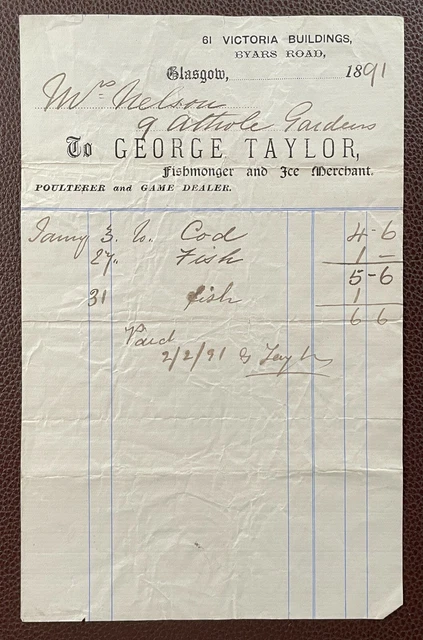 61 VICTORIA BUILDINGS,
BYARS ROAD,
Glasgow, 1891
Mrs Nelson
9 Athole Gardens
To GEORGE TAYLOR,
Fishmonger and Ice Merchant.
POULTERER and GAME DEALER.
Jany 3. To Cod 4-6
27. Fish 1-
5-6
31 fish 1
6 6
Paid
2/2/91 G Taylor